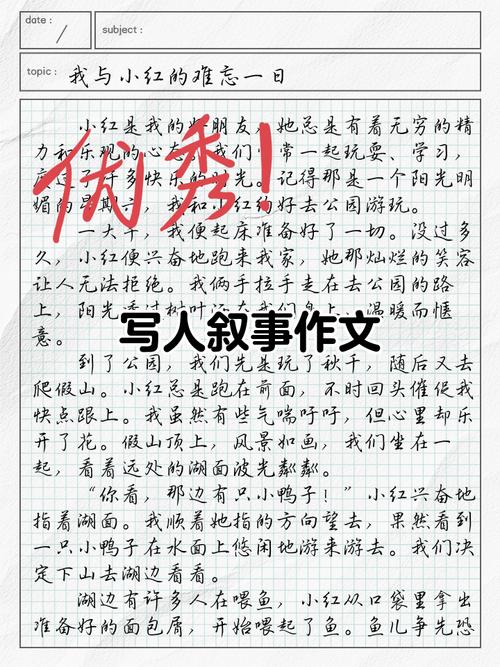 date：
/
subject：
topic： 我与小红的难忘一日
小红是我的好朋友，她总是有着无穷的精
力和乐观的心态。我们常一起玩耍、学习，
度过了许多快乐的时光。记得那是一个阳光明
媚的星期六，我和小红约好去公园游玩。
优秀！
一大早，我便起床准备好了一切。没过多
久，小红便兴奋地跑来我家，她那灿烂的笑容
让人无法拒绝。我俩手拉手走在去公园的路
上，阳光透过树叶洒在我们身上，温暖而惬
意。
写人叙事作文
到了公园，我们先是玩了秋千，随后又去
爬假山。小红总是跑在前面，不时回头催促我
快点跟上。我虽然有些气喘吁吁，但心里却乐
开了花。假山顶上，风景如画，我们坐在一
起，看着远处的湖面波光粼粼。
“你看，那边有只小鸭子！”小红兴奋地
指着湖面。我顺着她指的方向望去，果然看到
一只小鸭子在水面上悠闲地游来游去。我们决
定下山去湖边看看。
湖边有许多人在喂鱼，小红从口袋里拿出
准备好的面包屑，开始喂起了鱼。鱼儿争先恐